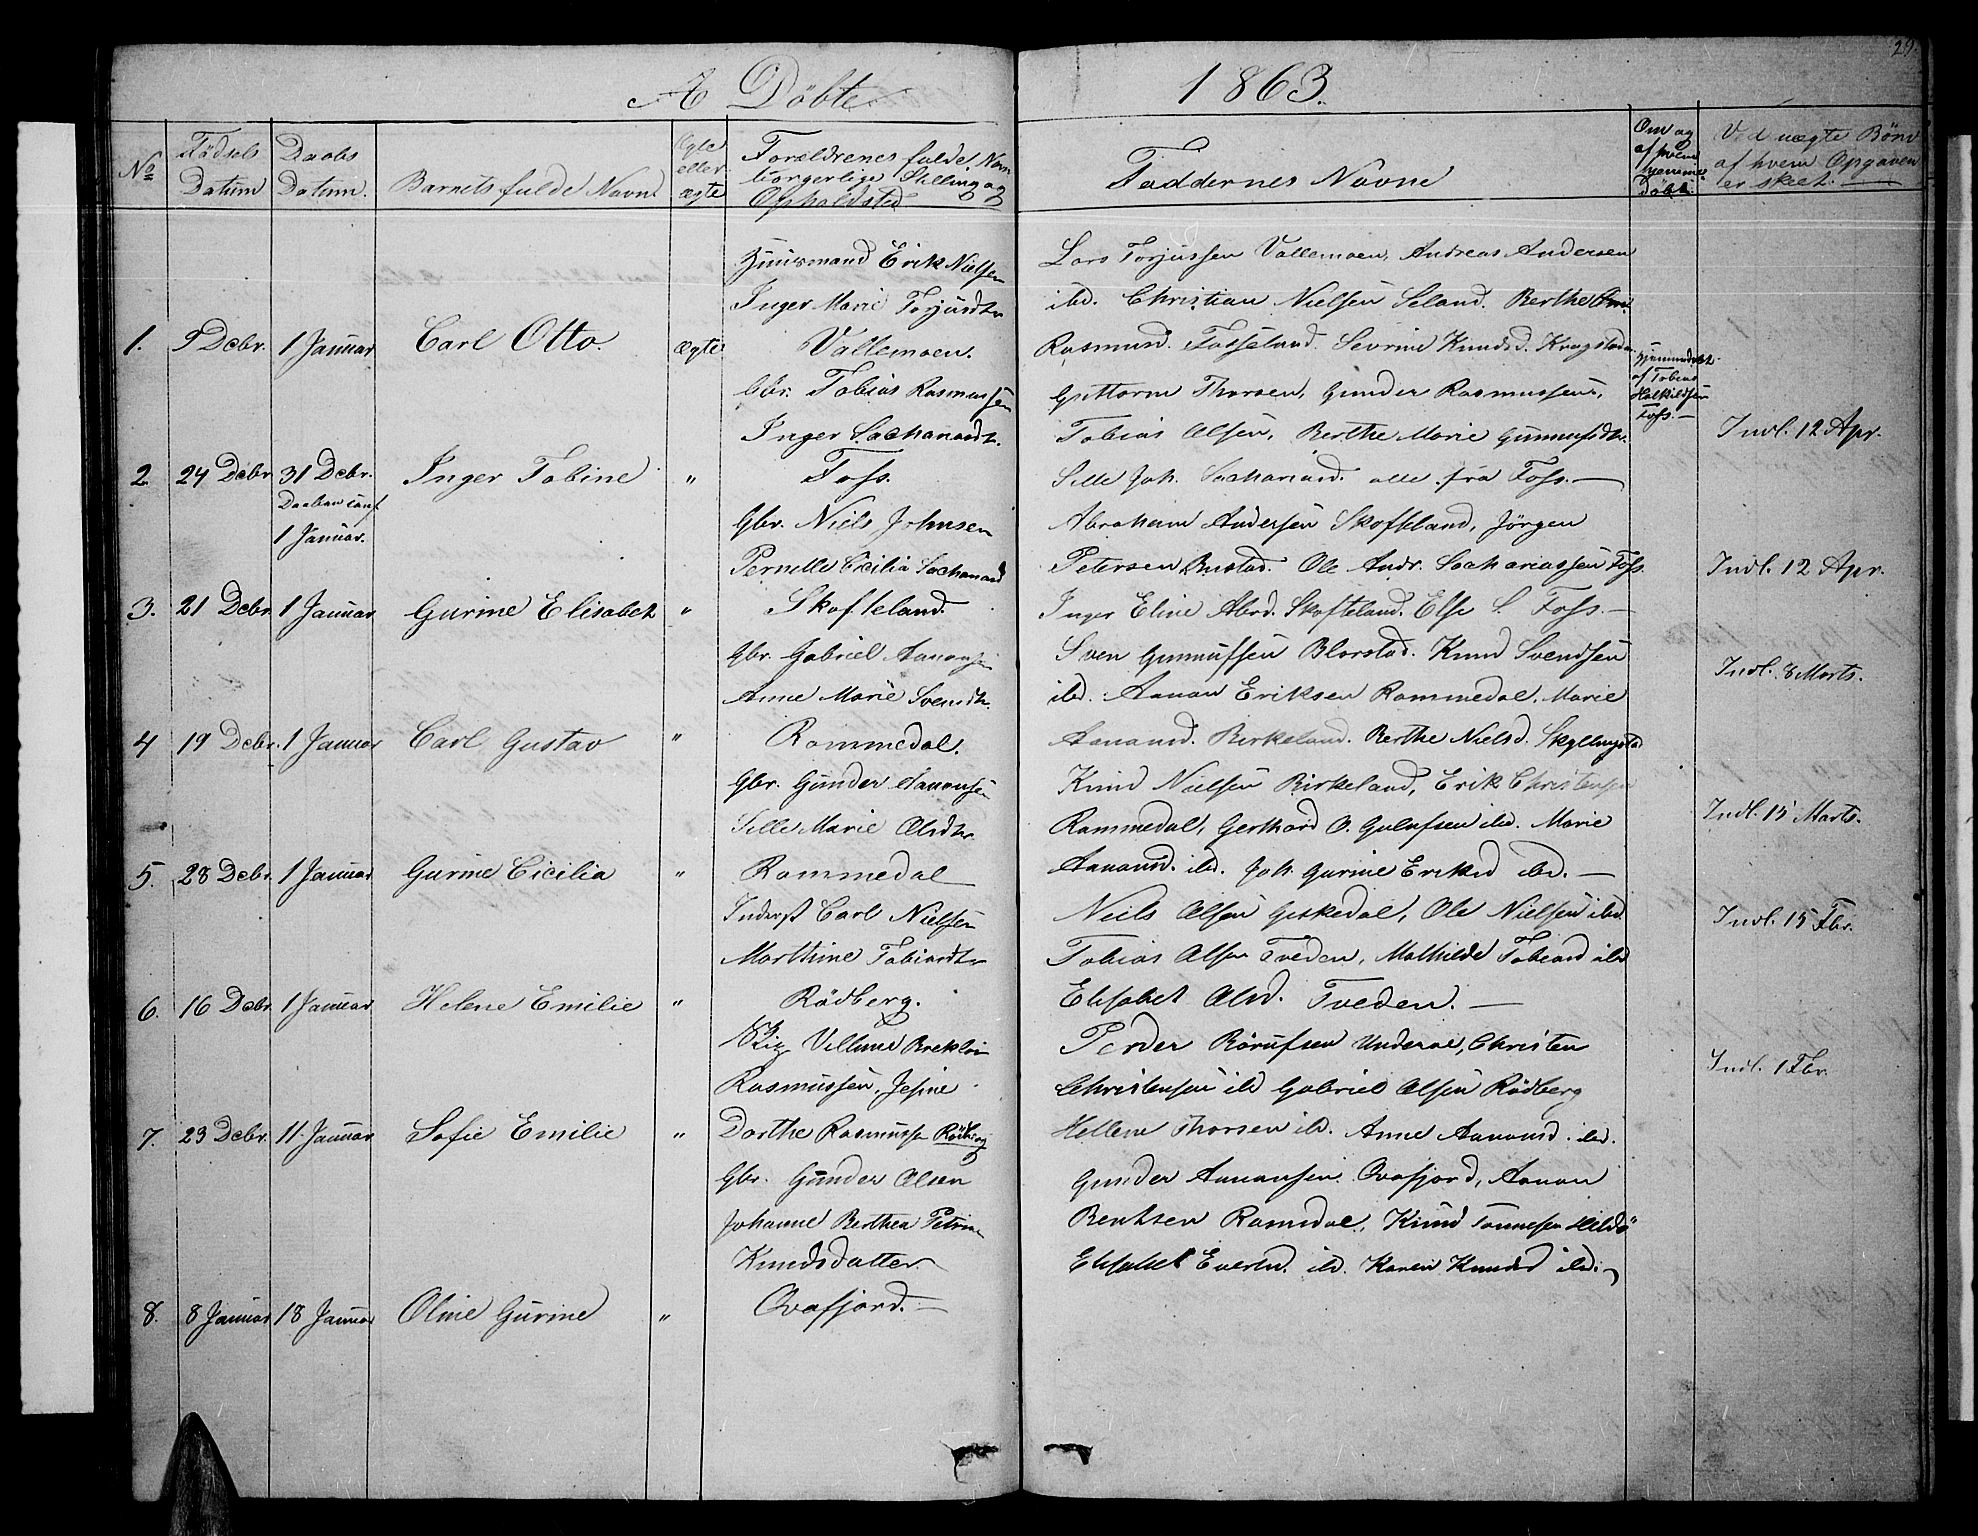 29.
A Döbte 1863.
No
Födsels Datum
Daabs Datum.
Barnets fulde Navn.
Ægte eller uægte
Forældrenes fulde Navn borgerlige Stilling og Opholdsted
Faddernes Navne
Om og af hvem hjemme Döbt.
Ved uægte Börn af hvem Opgaven er skeet.
Huusmand Erik Nielsen
Inger Marie Torjusdtr
1. 9 Debr. 1 Januar Carl Otto. Ægte Vallemoen.
Gbr. Tobias Rasmussen
Inger Sachariasdtr.
2 24 Debr 31 Debr. Inger Tobine " Foss.
Daaben conf
1 Januar.
Gbr. Niels Johnsen
Pernille Cicilia Sachariasd
3. 21 Debr. 1 Januar Gurine Elisabet " Skofteland.
Gbr. Gabriel Aanonsen
Anne Marie Svendsdtr.
4 19 Debr. 1 Januar Carl Gustav " Rommedal.
Gbr. Gunder Aanonsen
Sille Marie Olsdtr.
5. 28 Debr. 1 Januar Gurine Cicilia " Rommedal
Inderst Carl Nielsen
Marthine Tobiasdtr
6. 16 Debr. 1 Januar Helene Emilie " Rödberg.
Villume
Rasmussen, Jesine
7. 23 Debr. 11 Januar Sofie Emilie " Dorthe Rasmussen Rödberg
Gbr. Gunder Olsen
Johanne Berthea Petrine
Knudsdatter
8. 8 Januar 18 Januar Oline Gurine " Ovafjord.
Lars Torjussen Vallemoen, Andreas Andersen
ibd. Christian Nielsen Seland. Berthe
Rasmusd. Fasseland. Sevrine Knudsd. Krogstad
Guttorm Thorsen, Gunder Rasmussen,
Tobias Olsen, Berthe Marie Gunnufsdtr.
Sille Joh. Sachariasd. alle fra Foss.
Abraham Andersen Skofteland, Jörgen
Petersen Bustad. Ole Andr. Sachariassen Foss
Inger Eline Abrd. Skofteland. Else S. Foss.
Sven Gunnufsen Blorstad. Knud Svendsen
ibd. Aanon Eriksen Rommedal. Marie
Aanonsd. Birkeland. Berthe Nielsd. Skyllingstad
Knud Nielsen Birkeland, Erik Christensen
Rommedal, Gerthard O. Gulufsen ibd. Marie
Aanonsd. ibd. Joh. Gurine Eriksd ibd.
Niels Olsen Geskedal, Ole Nielsen ibd
Tobias Olsen Tveden, Mathilde Tobiasd ibd
Elisabet Olsd. Tveden.
Peder Rörufsen Underøe, Christen
Christensen ibd Gabriel Olsen Rödberg
Hellem Thorsen ibd. Anne Aanonsd. ibd.
Gunder Aanonsen Ovafjord, Aanon
Bentsen Romsdal, Knud Tönnesen Hildö
Elisabet Evertsd. ibd. Karen Knudsd ibd.
Hjemmedöbt
af Tobias
Halkildsen
Foss.
Indl. 12 Apr.
Indl. 12 Apr.
Indl. 8 Marts.
Indl. 15 Marts.
Indl. 15 Fbr.
Indl. 1 Fbr.